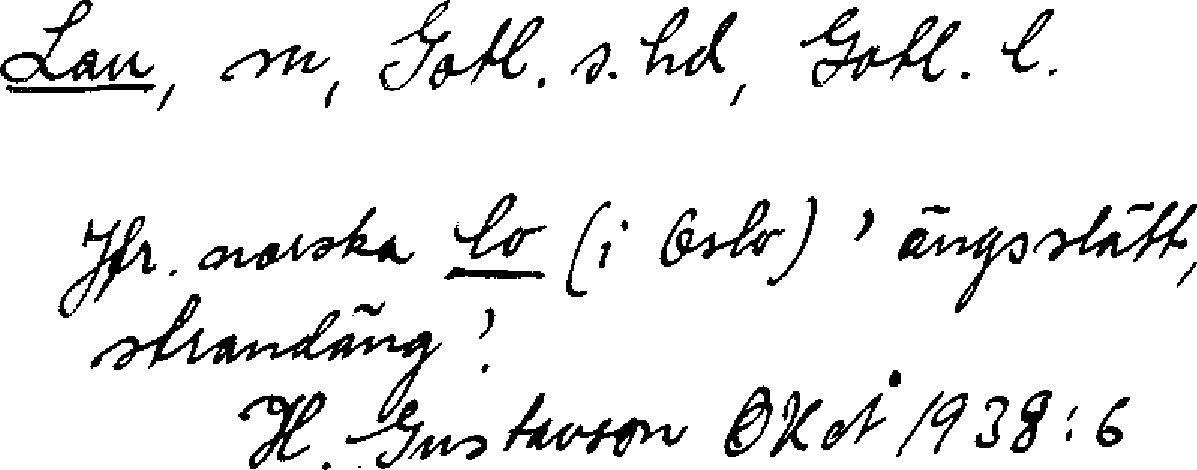 Lau, sn, Gotl. s. hd, Gotl. l.
Jfr. norska lo (i Oslo) 'ängsslätt,
strandäng'.
H. Gustavson OKtÅ 1938:6